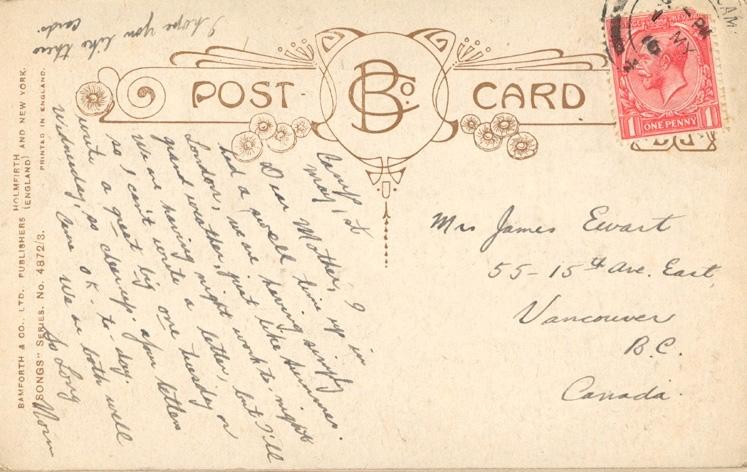 I hope you like these
cards.
POST CARD
B Co.
ONE PENNY
1 1
Camp,
May, 1st
Dear Mother, I
had a swell time up in
London, we are having simply
grand weather, just like summer.
We are having night work to night
so, I can't write a letter, but I'll
write a great big one Tuesday or
Wednesday, so cheer up. your letters
came O.K. to-day.
We are both well
So Long
Norm
Mrs James Ewart
55-15th Ave. East,
Vancouver
B.C.
Canada.
BAMFORTH & CO., LTD., PUBLISHERS HOLMFIRTH AND NEW YORK.
(ENGLAND)
PRINTED IN ENGLAND.
"SONGS" SERIES. No. 4872/3.